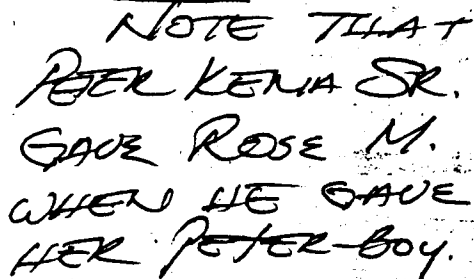 NOTE THAT
PETER KEMA SR.
GAVE ROSE M.
WHEN HE GAVE
HER PETER-BOY.